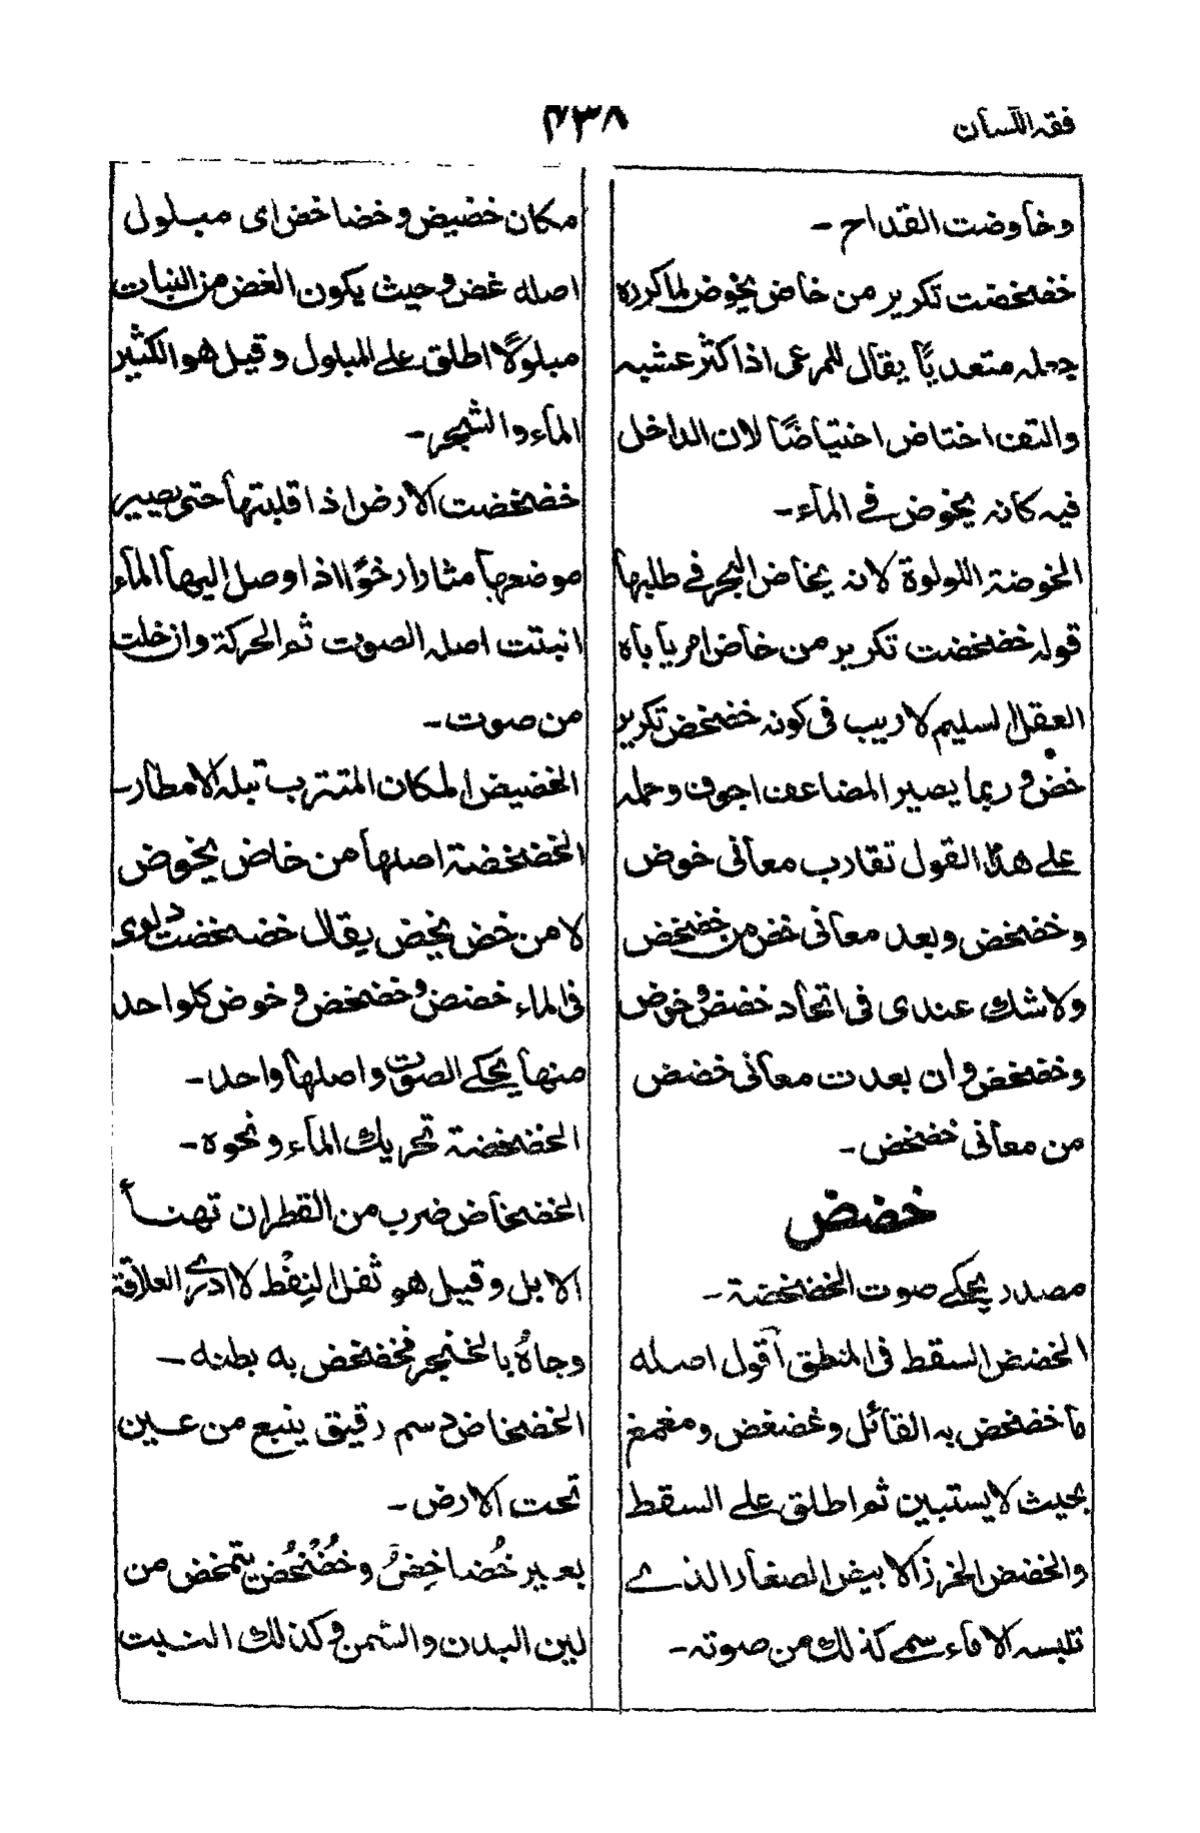 فقه اللسان
۷۳۸
وخاوضت القداح ـ
خضخضت تكرير من خاض يخوض لما كرره
جعله متعديًا يقال للمرعى اذا كثر عشبه
والتف اختاض اختياضًا لان الداخل
فيه كانه يخوض فى الماء ـ
الخوضة اللولوة لانه يخاض البحر فى طلبها
قوله خضخضت تكرير من خاض امر ياباه
العقل السليم لا ريب فى كونه خضخض تكرير
خض و ربما يصير المضاعف اجوف وحمله
على هذا القول تقارب معانى خوض
وخضخض وبعد معانى خض من خضخض
ولا شك عندى فى اتحاد خضض وخوض
وخضخض وان بعدت معانى خضض
من معانى خضخض ـ
خضض
مصدر يحكى صوت الخضخضة ـ
الخضض السقط فى المنطق اقول اصله
ما خضخض به القائل وغضغض ومغمغ
بحيث لا يستبين ثم اطلق على السقط
والخضض الخرز الابيض الصغار الذى
تلبسه الاماء سمى كذلك من صوته ـ
مكان خضيض وخضاخض اى مبلول
اصله غض وحيث يكون الغض من النبات
مبلولًا اطلق على المبلول وقيل هو الكثير
الماء والشجر ـ
خضخضت الارض اذا قلبتها حتى يصير
موضعها مثارا رخوًا اذا وصل اليها الماء
انبتت اصله الصوت ثم الحركة وان خلت
من صوت ـ
الخضيض المكان المتترب تبله الامطار ـ
الخضخضة اصلها من خاض يخوض
لا من خض يخض يقال خضخضت دلوى
فى الماء خضض وخضخض وخوض كلواحد
منها يحكى الصوت واصلها واحد ـ
الخضخضة تحريك الماء ونحوه ـ
الخضخاض ضرب من القطران تهنأ
الابل وقيل هو ثفل النِفْط لا ادرى العلاقة
وجاهُ بالخنجر فخضخض به بطنه ـ
الخضخاض دسم رقيق ينبع من عين
تحت الارض ـ
بعير خُضاخِضٌ وخُضْخُضٌ يتمخض من
لين البدن والسمن وكذلك النبت